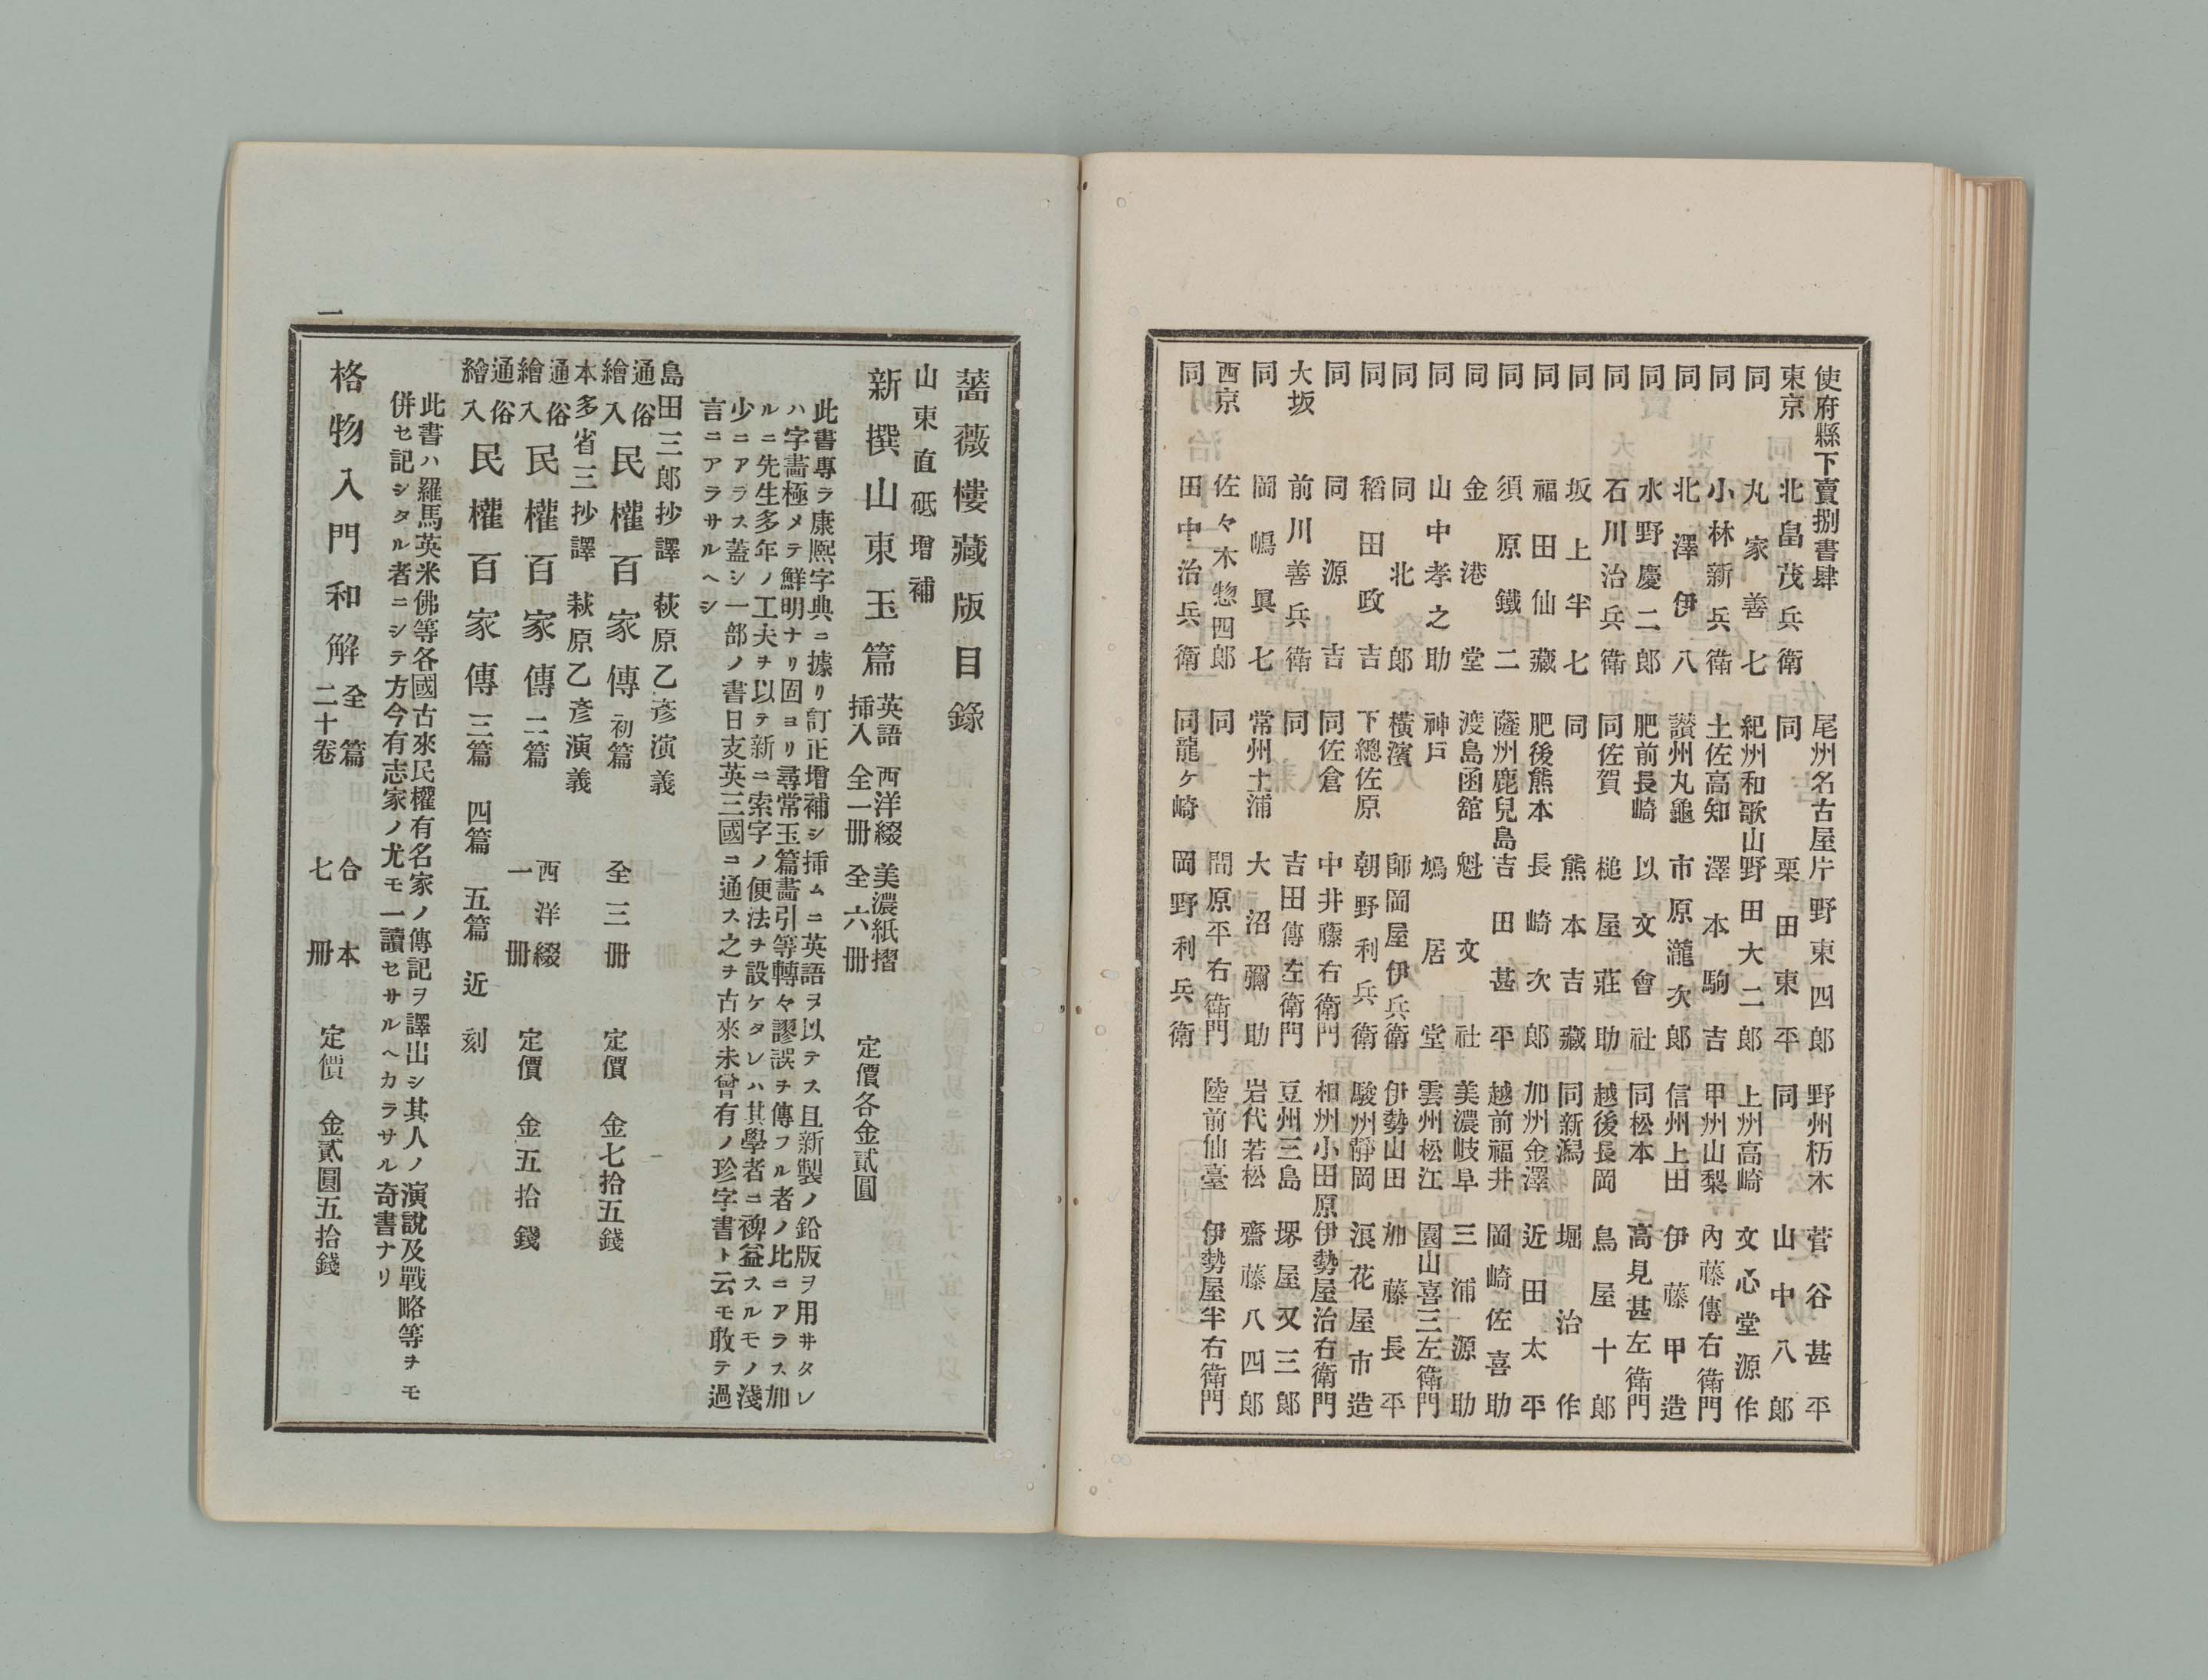 使府縣下賣捌書肆
東京 北畠茂兵衛
同 丸家善七
同 小林新兵衛
同 北澤伊八
同 水野慶二郎
同 石川治兵衛
同 坂上半七
同 福田仙藏
同 須原鐵二
同 金港堂
同 山中孝之助
同 同北郎
同 稻田政吉
同 同源吉
大坂 前川善兵衛
同 岡嶋眞七
西京 佐々木惣四郎
同 田中治兵衛
尾洲名古屋 片野東四郎
同 栗田東平
紀洲和歌山 野田大二郎
土佐高知 澤本駒吉
讃州丸龜 市原瀧次郎
肥前長崎 以文會社
同佐賀 槌屋莊助
同 熊本吉藏
肥後熊本 長崎次郎
薩州鹿兒島 吉田甚平
渡島函舘 魁文社
神戸 鳩居堂
橫濱 師岡屋伊兵衛
下總佐原 朝野利兵衛
同佐倉 中井藤右衛門
同 吉田傳左衛門
常州土浦 大沼彌助
同 間原平右衛門
同龍ケ崎 岡野利兵衛
野州栃木 菅谷甚平
同 山中八郎
上州高崎 文心堂源作
甲州山梨 內藤傳右衛門
信州上田 伊藤甲造
同松本 高見甚左衛門
越後長岡 鳥屋十郎
同新潟 堀治作
加州金澤 近田太平
越前福井 岡崎佐喜助
美濃岐阜 三浦源助
雲州松江 園山喜三左衛門
伊勢山田 加藤長平
駿州靜岡 浪花屋市造
相州小田原 伊勢屋治右衛門
豆州三島 堺屋又三郎
岩代若松 齋藤八四郎
陸前仙臺 伊勢屋半右衛門
薔薇樓藏版目錄
山東直砥增補
新撰山東玉篇 英語插入 西洋綴全一冊 美濃紙摺全六冊 定價各金貳圓
此書專ラ康熙字典ニ據リ訂正增補シ揷ムニ英語ヲ以テス且新製ノ鉛版ヲ用ヰタレ
ハ字畵極メテ鮮明ナリ固ヨリ尋常玉篇畵引等轉々謬誤ヲ傳フル者ノ比ニアラス加
ルニ先生多年ノ工夫ヲ以テ新ニ索字ノ便法ヲ設ケタレハ其學者ニ裨益スルモノ淺
少ニアラス蓋シ一部ノ書日支英三國ニ通ス之ヲ古來未曾有ノ珍字書ト云モ敢テ過
言ニアラサルヘシ
島田三郎抄譯 萩原乙彥演義
通俗繪入 民權百家傳 初篇 全三冊 定價 金七拾五錢
本多省三抄譯 萩原乙彥演義
通俗繪入 民權百家傳 二篇 西洋綴一冊 定價 金五拾錢
通俗繪入 民權百家傳 三篇 四篇 五篇 近刻
此書ハ羅馬英米佛等各國古來民權有名家ノ傳記ヲ譯出シ其人ノ演說及戰略等ヲモ
併セ記シタル者ニシテ方今有志家ノ尤モ一讀セサルヘカラサル奇書ナリ
格物入門和解 全篇二十卷 合本七冊 定價 金貳圓五拾錢
一